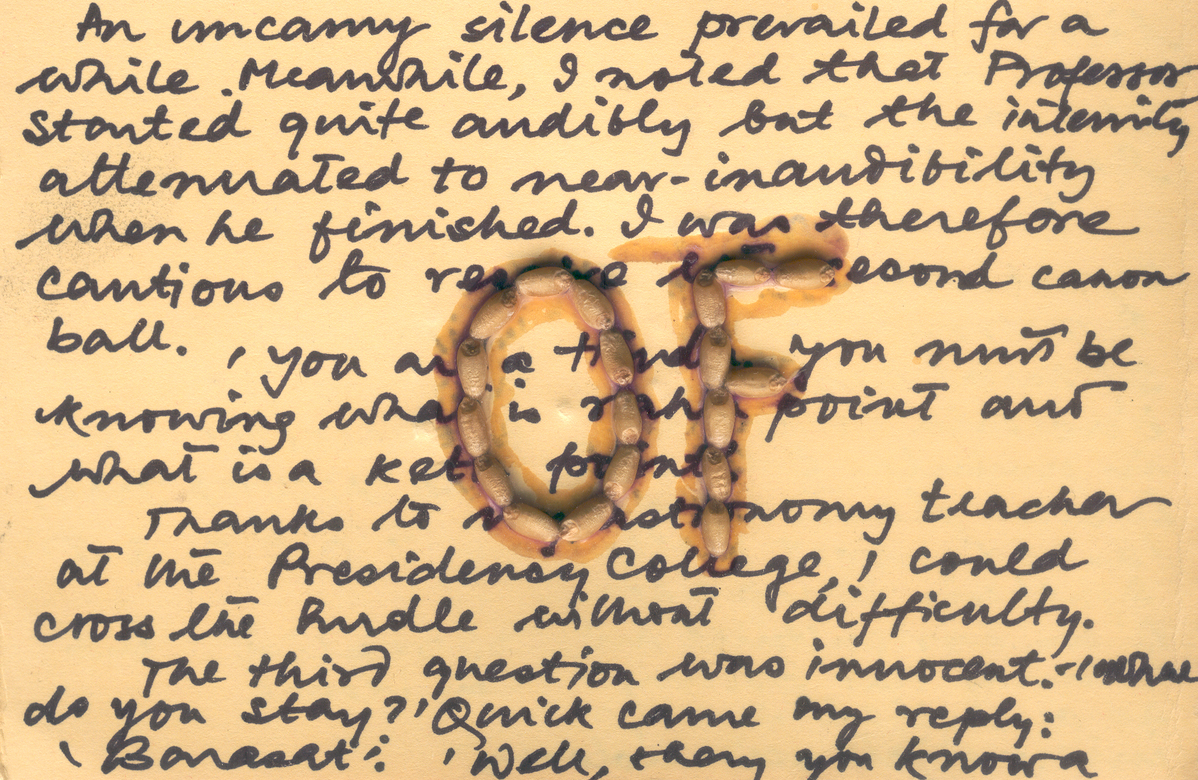 An uncanny silence prevailed for a
while. Meanwhile, I noted that Professor
started quite audibly but the intensity
attenuated to near-inaudibility
when he finished. I was therefore
cautious to second canon
ball.
OF
'You are a you must be
knowing what is point and
what is a point
Thanks to astronomy teacher
at the Presidency College, I could
cross the hurdle without difficulty.
The third question was innocent. - 'Where
do you stay?' Quick came my reply:
'Barasat'. 'Well, then you know a